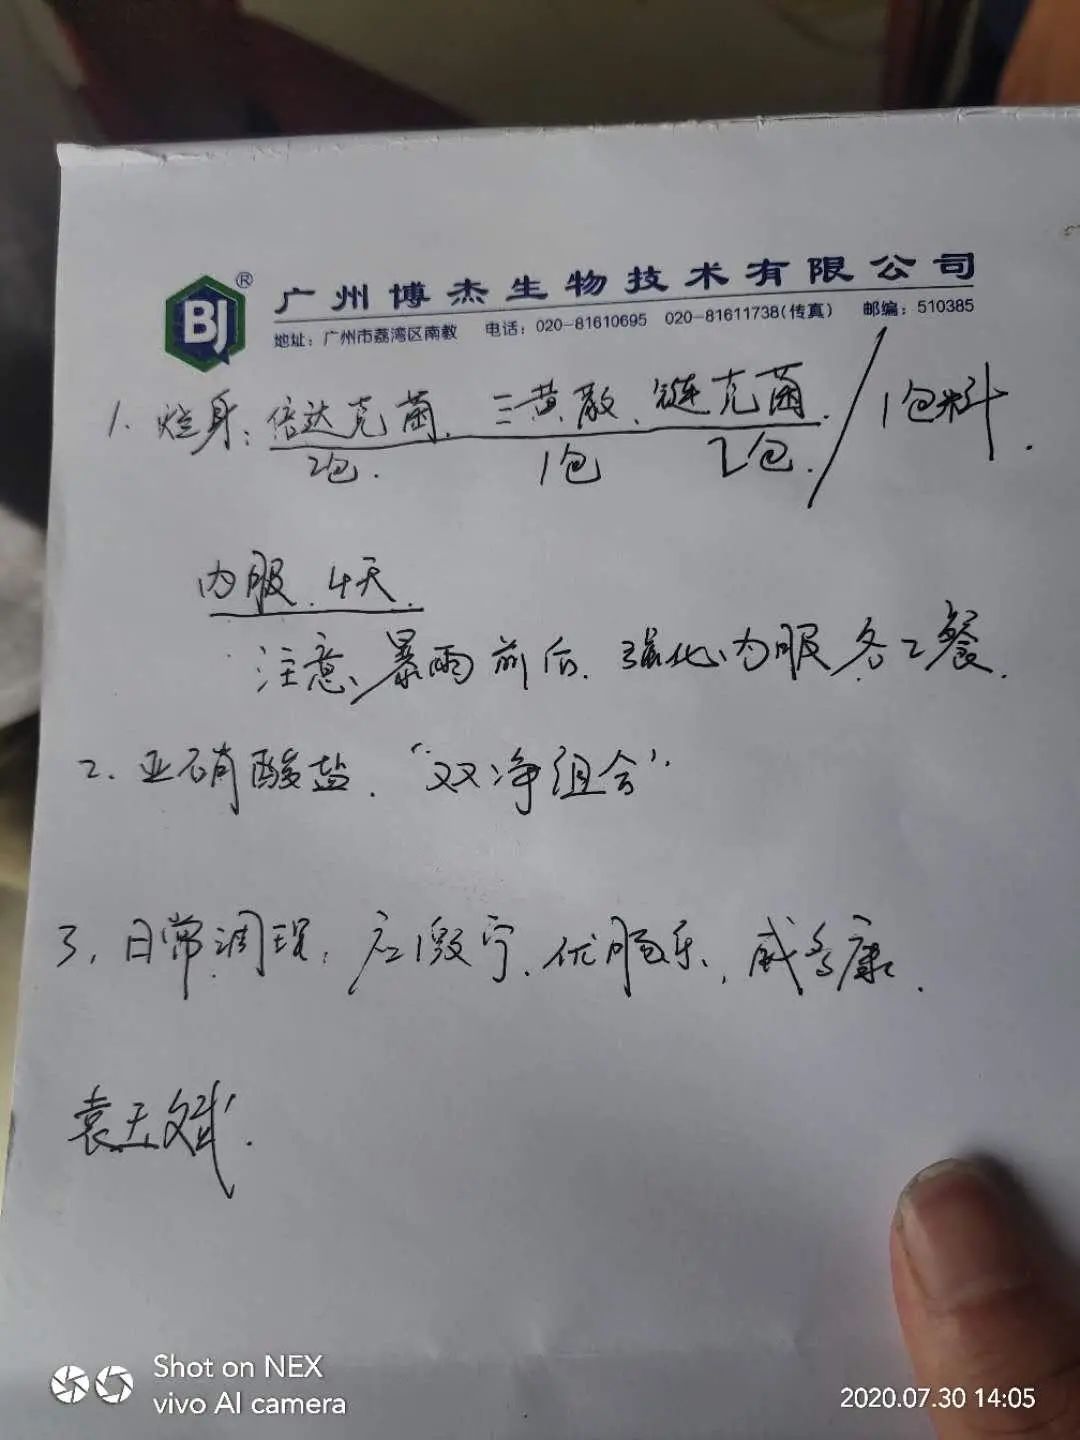 BJ®
广州博杰生物技术有限公司
地址：广州市荔湾区南教 电话：020-81610695 020-81611738(传真) 邮编：510385
1、烂身：倍达克菌、三黄散、链克菌. / 1包料.
2包. 1包 2包.
内服、4天.
注意、暴雨前后、强化内服各2餐.
2、亚硝酸盐、"双净组合"
3、日常调理：应激宁、优肠乐、威多康.
袁玉斌.
Shot on NEX
vivo AI camera
2020.07.30 14:05